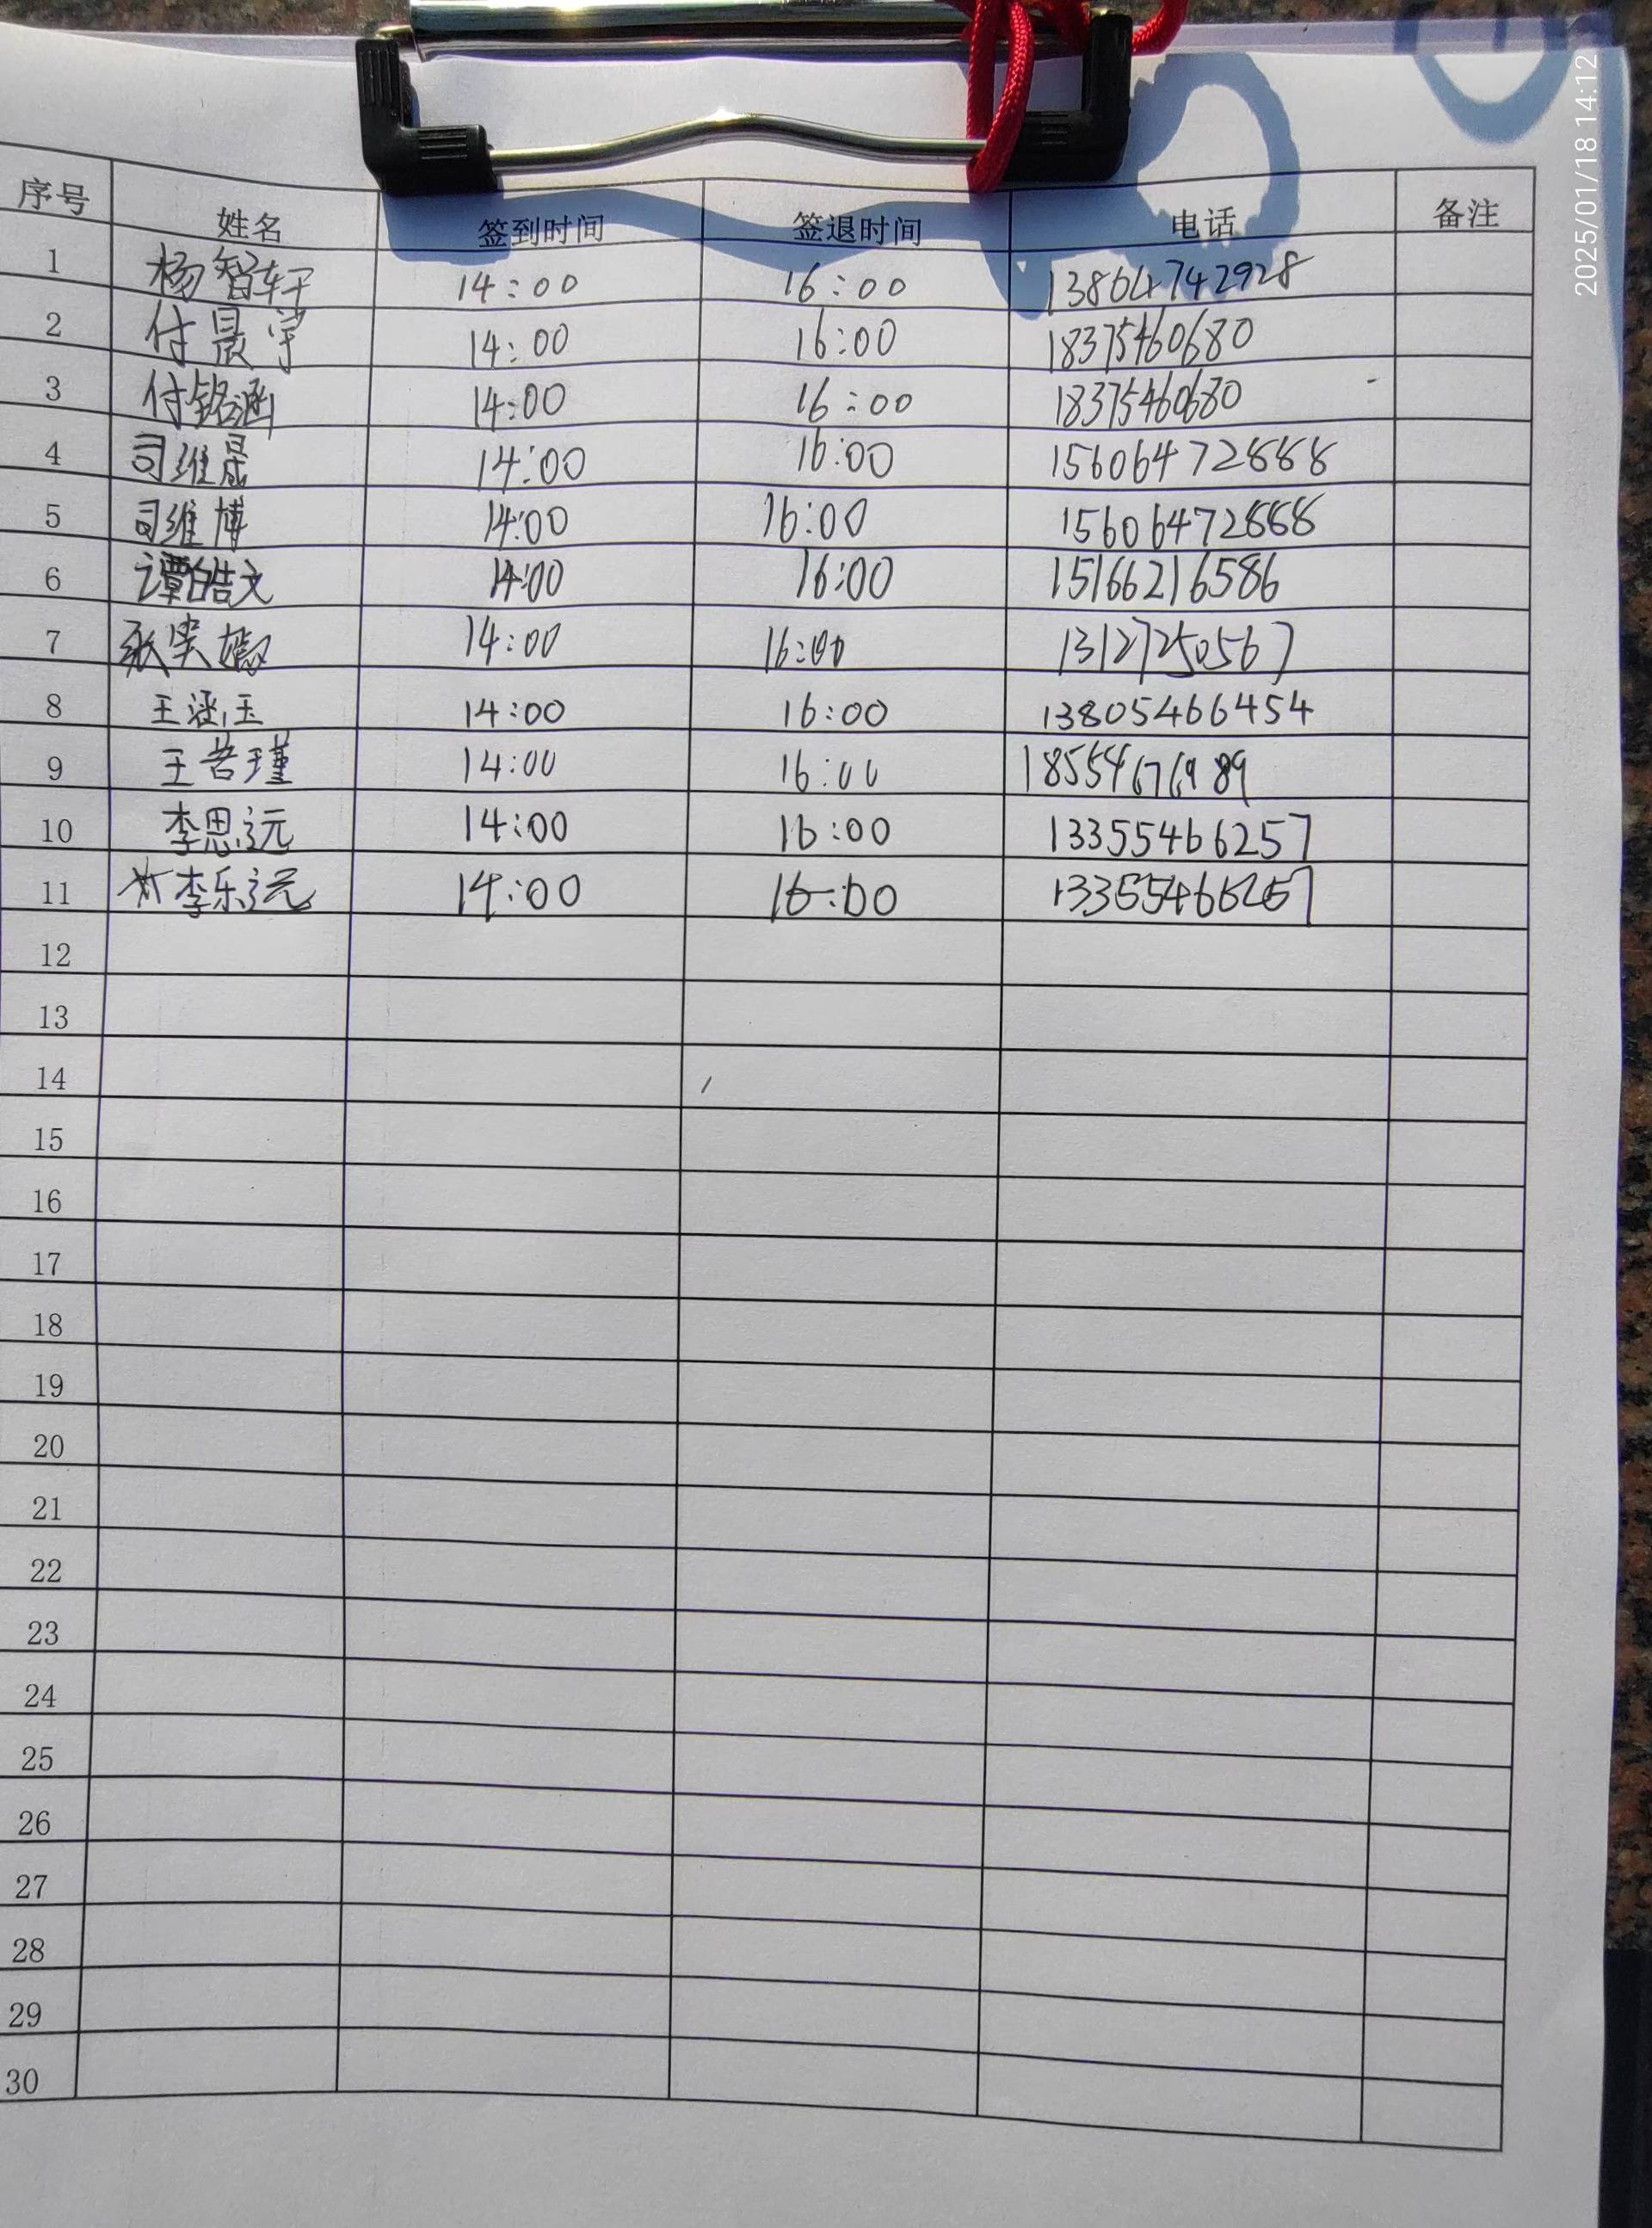 2025/01/18 14:12
序号 姓名 签到时间 签退时间 电话 备注
1 杨智轩 14:00 16:00 13864742928
2 付晨宇 14:00 16:00 18375460680
3 付铭涵 14:00 16:00 18375460680
4 司维晟 14:00 16:00 156064728888
5 司维博 14:00 16:00 15606472888
6 谭皓文 14:00 16:00 15166216586
7 14:00 16:00 13127250567
8 王涵玉 14:00 16:00 13805466454
9 王若瑾 14:00 16:00
10 李思远 14:00 16:00 13355466257
11 李乐远 14:00 16:00 13355466257
12
13
14
15
16
17
18
19
20
21
22
23
24
25
26
27
28
29
30